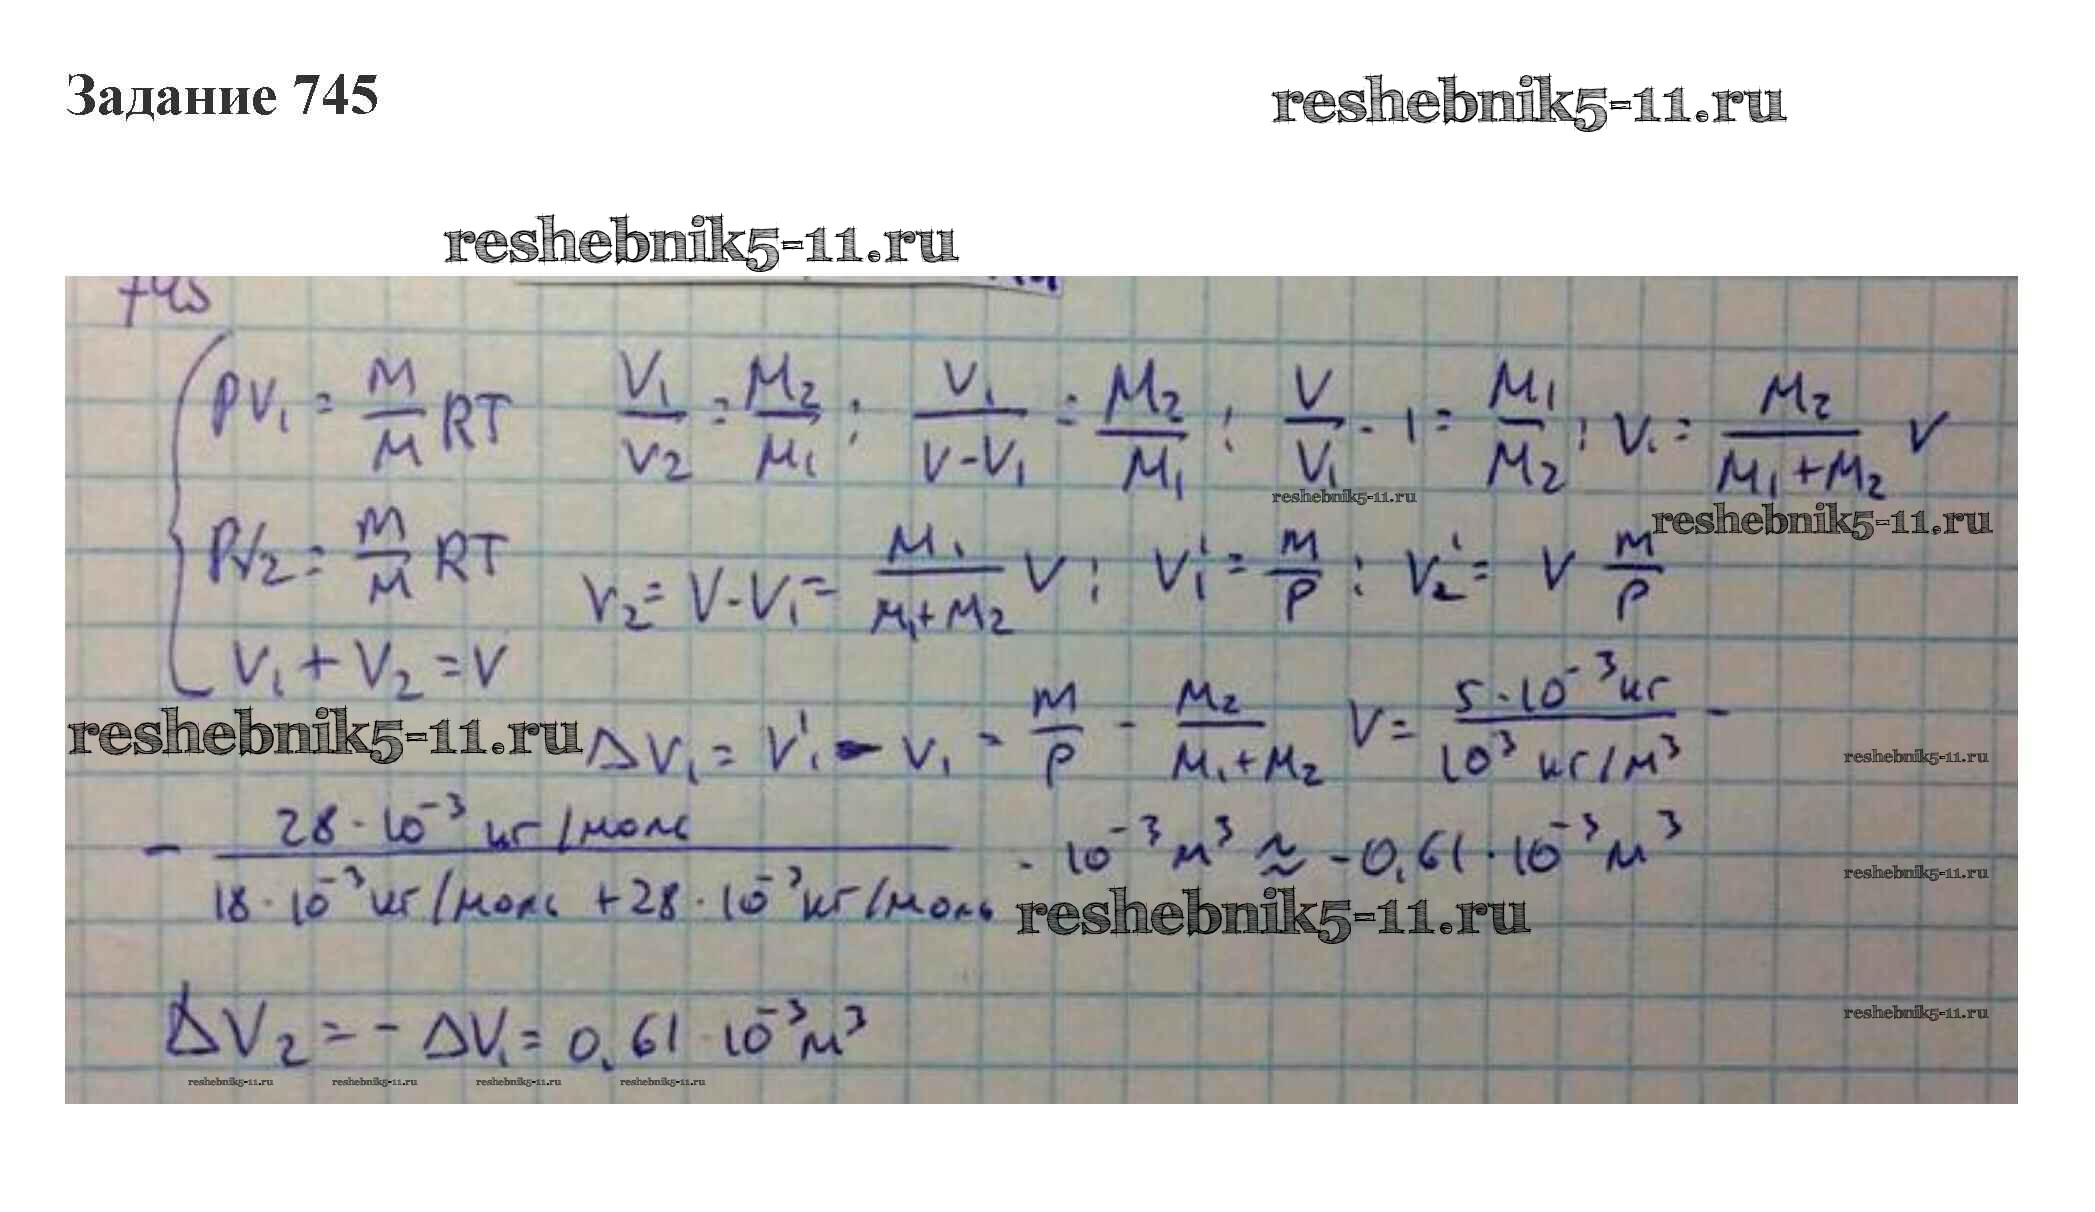 Задание 745
reshebnik5-11.ru
reshebnik5-11.ru
745
PV₁ = m/M RT    V₁/V₂ = M₂/M₁ ; V₁/(V-V₁) = M₂/M₁ ; V/V₁ - 1 = M₁/M₂ ; V₁ = M₂/(M₁+M₂) V
reshebnik5-11.ru
reshebnik5-11.ru
PV₂ = m/M RT    V₂ = V-V₁ = M₁/(M₁+M₂) V ; V₁' = m/P ; V₂' = V m/P
V₁ + V₂ = V
reshebnik5-11.ru
ΔV₁ = V₁' - V₁ = m/P - M₂/(M₁+M₂) V = 5·10⁻³ кг/10³ кг/м³ -
reshebnik5-11.ru
- 28·10⁻³ кг/моль/(18·10⁻³ кг/моль + 28·10⁻³ кг/моль) · 10⁻³ м³ ≈ -0,61·10⁻³ м³
reshebnik5-11.ru
reshebnik5-11.ru
ΔV₂ = - ΔV₁ = 0,61·10⁻³ м³
reshebnik5-11.ru
reshebnik5-11.ru reshebnik5-11.ru reshebnik5-11.ru reshebnik5-11.ru